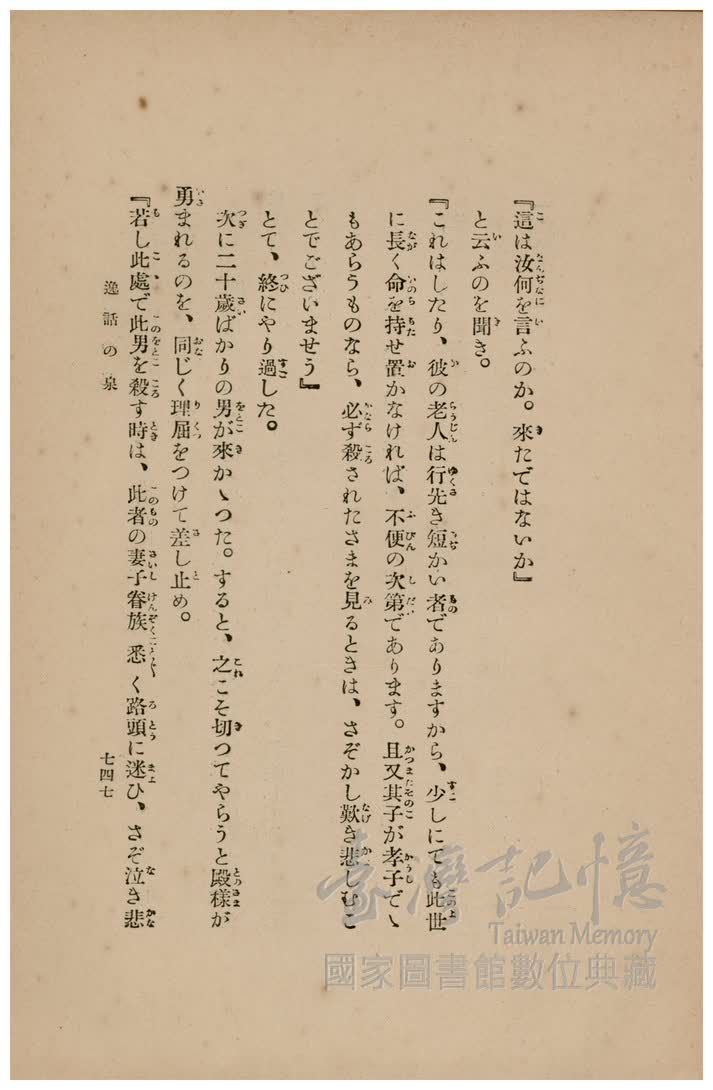 『這は汝何を言ふのか。來たではないか』
と云ふのを聞き。
『これはしたり、彼の老人は行先き短かい者でありますから、少しにても此世
に長く命を持せ置かなければ、不便の次第であります。且又其子が孝子でゝ
もあらうものなら、必ず殺されたさまを見るときは、さぞかし歎き悲しむこ
とでございませう』
とて、終にやり過した。
次に二十歲ばかりの男が來かゝつた。すると、之こそ切つてやらうと殿樣が
勇まれるのを、同じく理屈をつけて差し止め。
『若し此處で此男を殺す時は、此者の妻子眷族悉く路頭に迷ひ、さぞ泣き悲
逸話の泉
七四七
臺灣記憶
Taiwan Memory
國家圖書館數位典藏